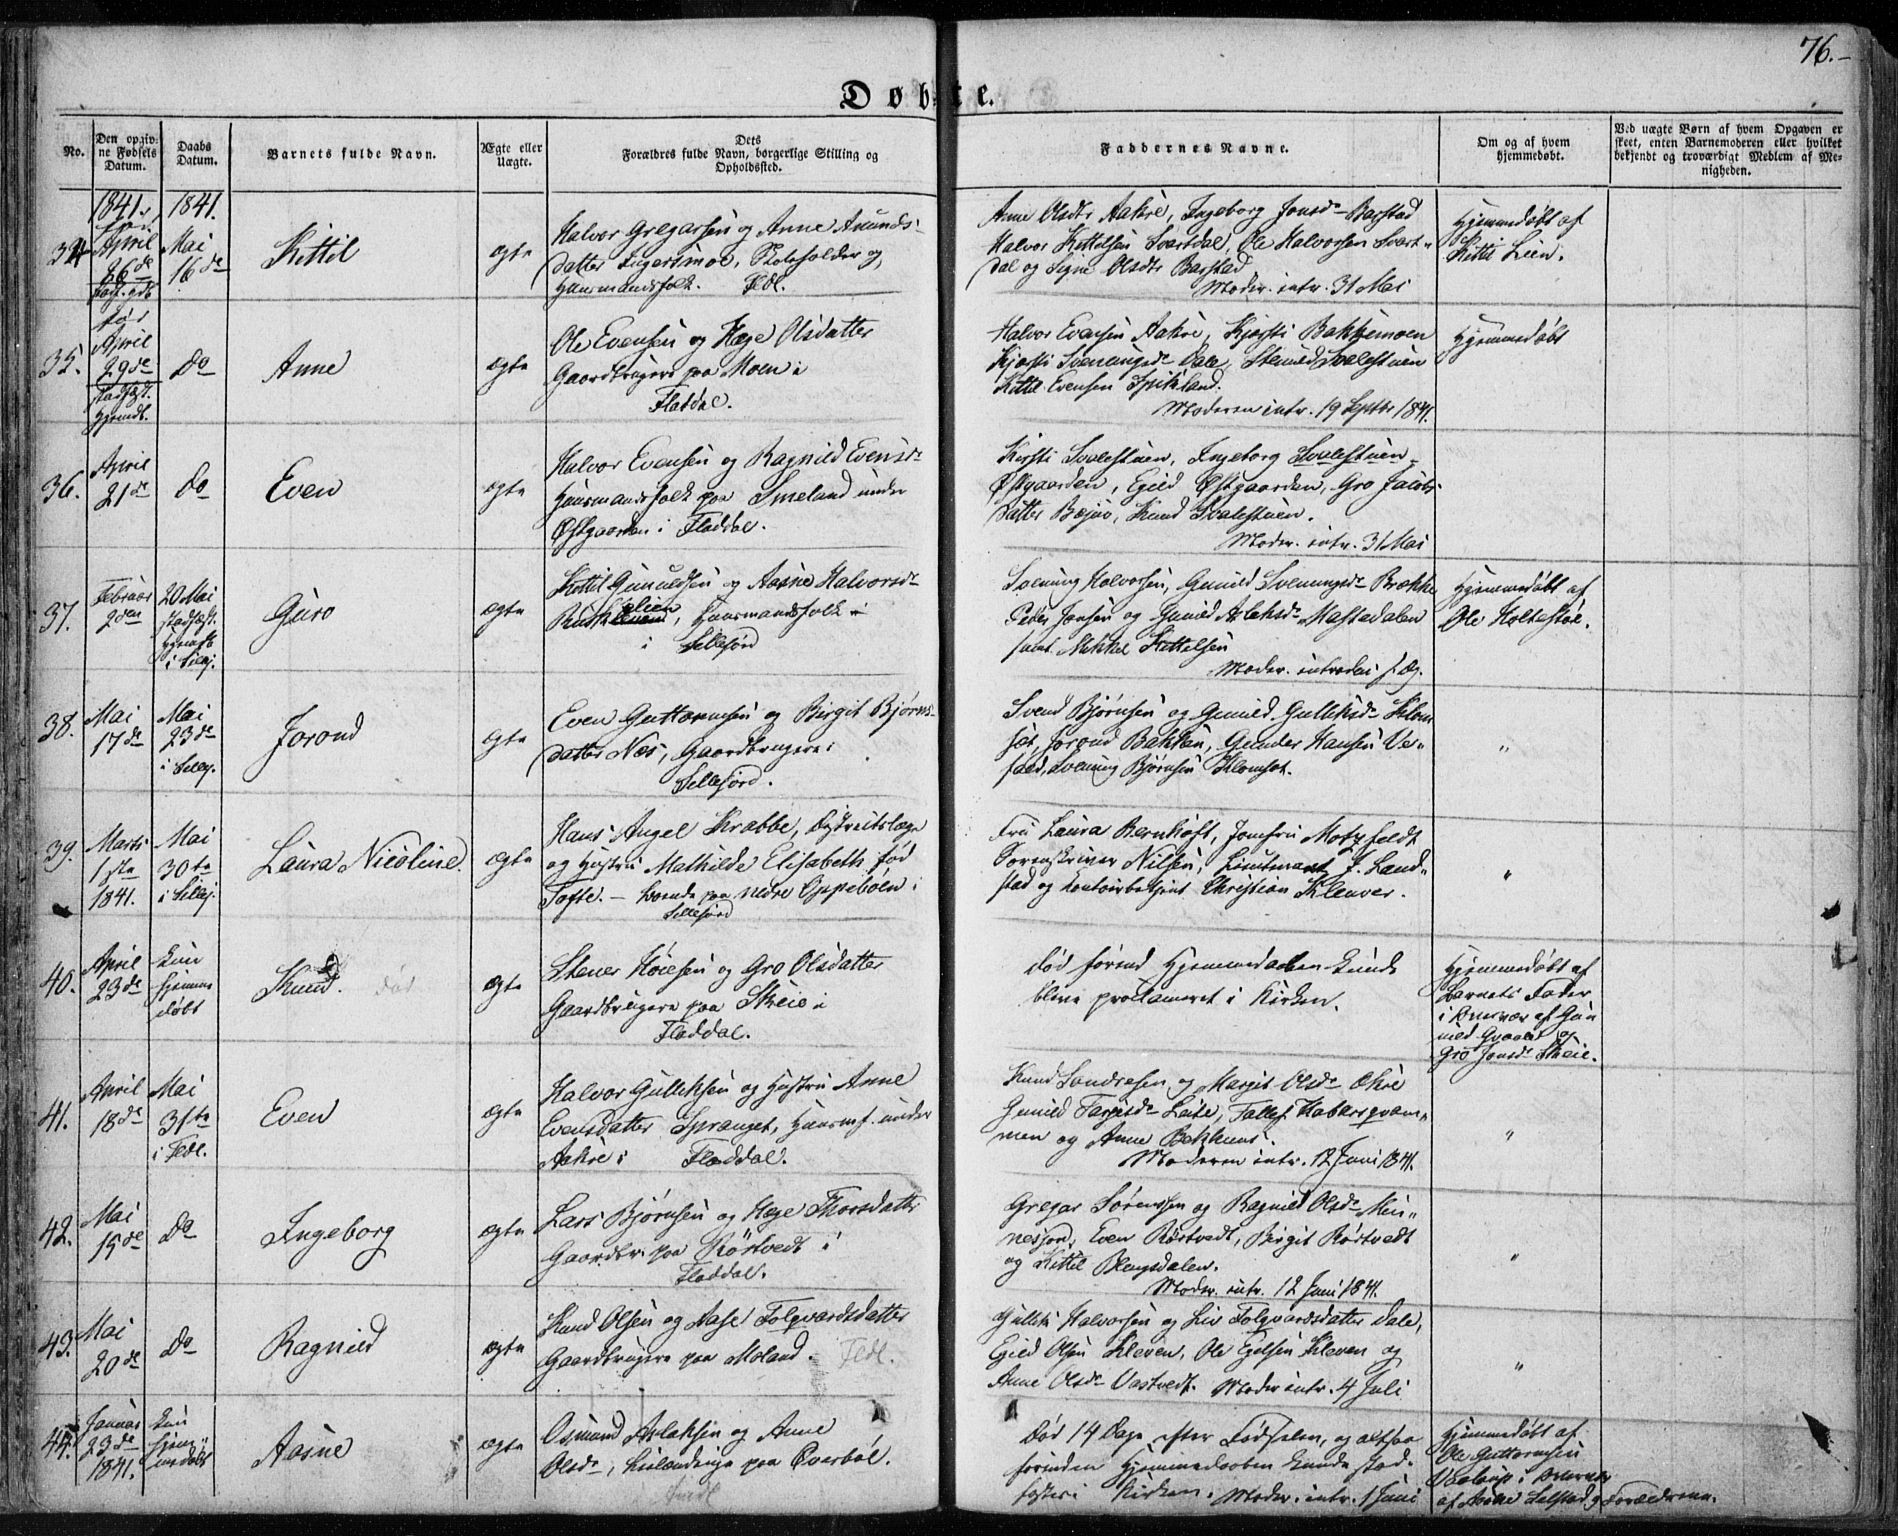 76.
Døbte.
No.
Den opgivne Fødsels Datum.
Daabs Datum.
Barnets fulde Navn.
Ægte eller Uægte.
Dets Forældres fulde Navn, borgerlige Stilling og Opholdssted.
Faddernes Navne.
Om og af hvem hjemmedøbt.
Ved uægte Børn af hvem Opgaven er skeet, enten Barnemoderen eller hvilket bekjendt og troværdigt Medlem af Menigheden.
34
1841
April
26de
1841.
Mai
16de
Kittil
ægte
Halvor Gregarsen og Anne Amunds-
datter Ingersmoe,
Huusmandsfolk. Fldl.
Anne Olsdtr Aakre, Ingeborg Jonsdr Barstad
Halvor Kittelsen Svartdal, Ole Halvorsen Svart-
dal og Signe Olsdtr Barstad
Moder. intr. 31 Mai
Hjemmedøbt af
Kittil Lien.
35.
April
29de
stadfæst.
hjemdt.
do
Anne
ægte
Ole Evensen og Hæge Olsdatter
Gaardbrugere paa Moen i
Fladdal.
Halvor Evensen Aakre, Kjersti Bakkemoen
Kjersti Svenungsdr Dale, Svalestuen
Kittil Evensen Spikland.
Moderen intr. 19 Septbr 1841.
Hjemmedøbt
36.
April
21de
do
Even
ægte
Halvor Evensen og Ragnild Evensdr
Huusmandsfolk paa Smeland under
Østgaarden i Fladdal.
Kirsti Svalestuen, Ingeborg Svalestuen
Østgaarden, Egild Østgaarden, Gro Jacobs-
datter Bøjuv, Knud Svalestuen.
Moder. intr. 31 Mai
37.
Februar
2den
20 Mai
stadfæst.
i Sillej.
Guro
ægte
Kittil Gunuldsen og Aasne Halvorsdr
lien, Huusmandsfolk
i Sillejord
Svenung Halvorsen, Gunild Svenungsdr Brække
Peder Jonsen og Gunild Aslaksdr Mastedalen
samt Mikkel Kittelsen
Moder. introduc. s. Dg.
Hjemmedøbt af
Ole Holtestøl.
38.
Mai
17de
Mai
23de
i Sillej.
Jorond
ægte
Even Guttormsen og Birgit Bjørns-
datter Næs, Gaardbrugere i
Sillejord.
Svend Bjørnsen og Gunild Gulliksdr Klom-
set, Jorond Bakken, Gunder Hansen Ve-
fald, Svenung Bjørnsen Klomset.
"
39.
Marts
1ste
1841.
Mai
30te
i Sillej.
Laura Nicoline.
ægte
Hans Angel Krabbe, Distriktslæge
og Hustru Mathilde Elisabeth fød
Tofte. – boende paa nedre Gjupebøen i
Sillejord
Fru Laura Bernhoft, Jomfru Motzfeldt
Sorenskriver Nilsen, Lieutenant J. Land-
stad og Contoirbetjent Christian Klenver.
"
40.
April
23de
kun
hjemme
døbt
Knud.
død
ægte
Stener Høiesen og Gro Olsdatter
Gaardbrugere paa Skeie i
Fladdal.
død førend Hjemmedaaben kunde
blive proclameret i Kirken.
Hjemmedøbt af
Barnets Fader
i Overvær af Gun-
nild Graver og
Gro Jonsdr Skeie.
41.
April
18de
Mai
31te
i Fldl.
Even
ægte
Halvor Gulliksen og Hustru Anne
Evensdatter Spranget, Huusmf. under
Aakre i Fladdal.
Knud Sondresen og Margit Olsdr Økre
Gunild Targiesdr Leite, Tallef Haversqvam-
men og Anne Bakkens.
Moderen intr. 12 Juni 1841.
"
42.
Mai
15de
do
Ingeborg
ægte
Lars Bjørnsen og Hæge Thorsdatter
Gaardbr. paa Rörtvedt i
Fladdal.
Gregar Sørenssen og Ragnild Olsdr Min-
nesjord, Even Rörtvedt, Birgit Rörtvedt
og Kittil Blengsdalen.
Moder. intr. 12 Juni 1841.
"
43.
Mai
20de
do
Ragnild
ægte
Knud Olsen og Aase Folqvardsdatter
Gaardbrugere paa Moland. Fldl.
Gullik Halvorsen og Liv Folqvardsdatter Dale,
Egild Olsen Kleven, Ole Egilsen Kleven og
Anne Olsdr Vastvedt. Moder intr. 4 Juli
"
44.
Januar
23de
1841.
kun
hjem-
medøbt
Aasne
ægte
Osmund Aslaksen og Anne
Olsdr, Leilændinge paa Qverbøl.
Død 14 Dage efter Fødselen, og altsaa
forinden Hjemmedaaben kunde stad-
fæstes i Kirken. Moder. intr. 1 Juni
Hjemmedøbt af
Ole Guttormsen
i Overvær
af Anne Selstad og Forældrene.